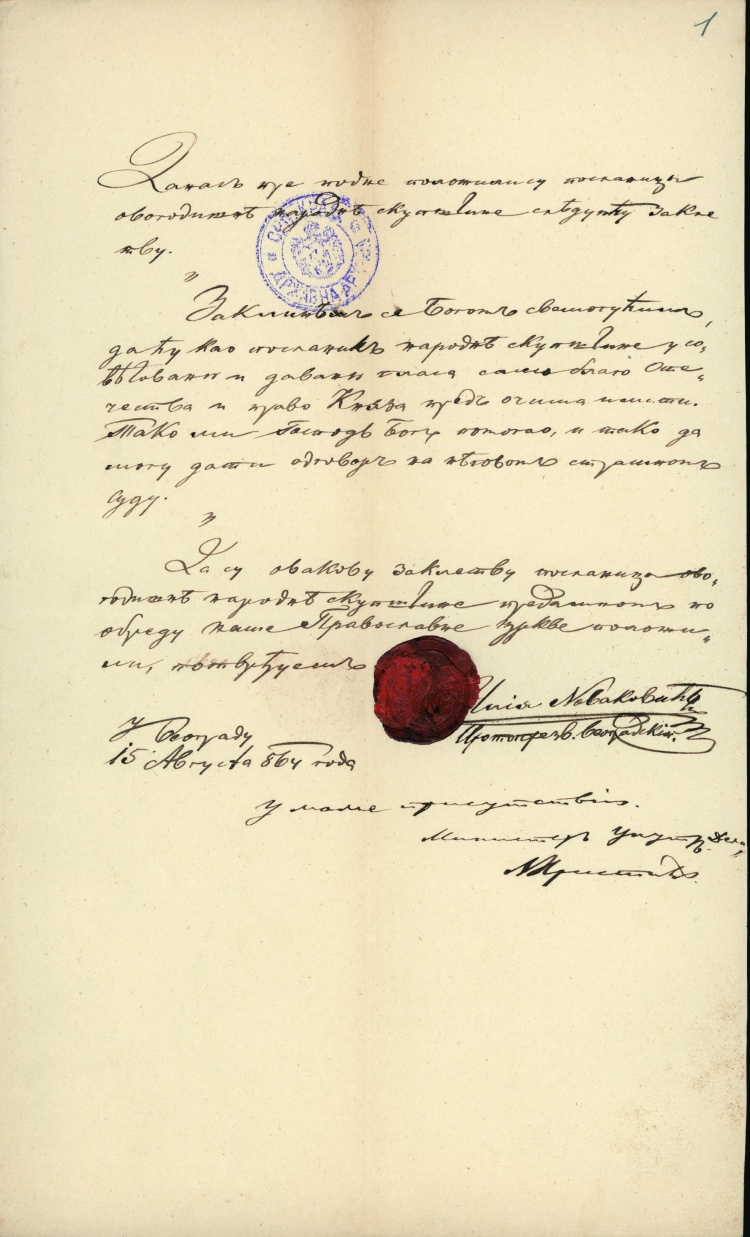 1
Данасъ пре подне положили су посланицы
овогодишнѣ народнѣ скупштине слѣдуюћу закле
тву.
"
Заклинѣмъ се Богомъ свемогућимъ,
да ћу као посланикъ народнѣ скупштине у со„
вѣтованю и даваню гласа само благо Оте„
чества и право Княза предъ очима имати.
Тако ми Господь Богъ помогао, и тако да
могу дати одговоръ на нѣговомъ страшномъ
суду.
"
Да су овакову заклетву посланицы ово„
годишнѣ народнѣ скупштине предамномъ по
обреду наше Православне цркве положи„
ли, потврђуемъ
Илія Новаковићъ
Протопрезв. београдскій.
У Београду
15 Августа 864 года
у моме присутствію.
Министеръ Унутр. Дела,
Н Христићъ
ДРЖАВНА